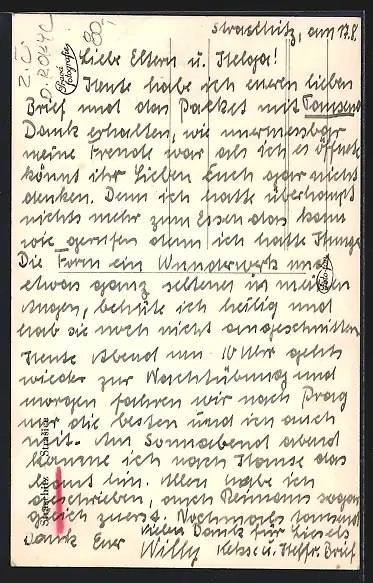 Straschitz, am 17.8.
Liebe Eltern u. Helga!
Heute habe ich eueren lieben
Brief und das Packet mit Tausend
Dank erhalten, wie unermessbar
meine Freude war als ich es öffnete
könnt ihr Lieben Euch gar nicht
denken. Denn ich hatte überhaupt
nichts mehr zum Essen das kam
wie gerufen denn ich hatte Hunger
Die Form ein Wunderwerk und
etwas ganz seltenes in meinen
Augen, behüte ich heilig und
hab sie noch nicht angeschnitten
Heute Abend um 10 Uhr gehts
wieder zur Nachtübung und
morgen fahren wir nach Prag
nur die besten und ich auch
mit. Am Sonnabend abend
komme ich nach Hause das
kommt hin. Allen habe ich
geschrieben, auch Reimanns sogar
gleich zuerst. Nochmals tausend
Dank Euer Willy
vielen Dank für Liesels
Kekse u. Brief
Pravá fotografie
Strašice